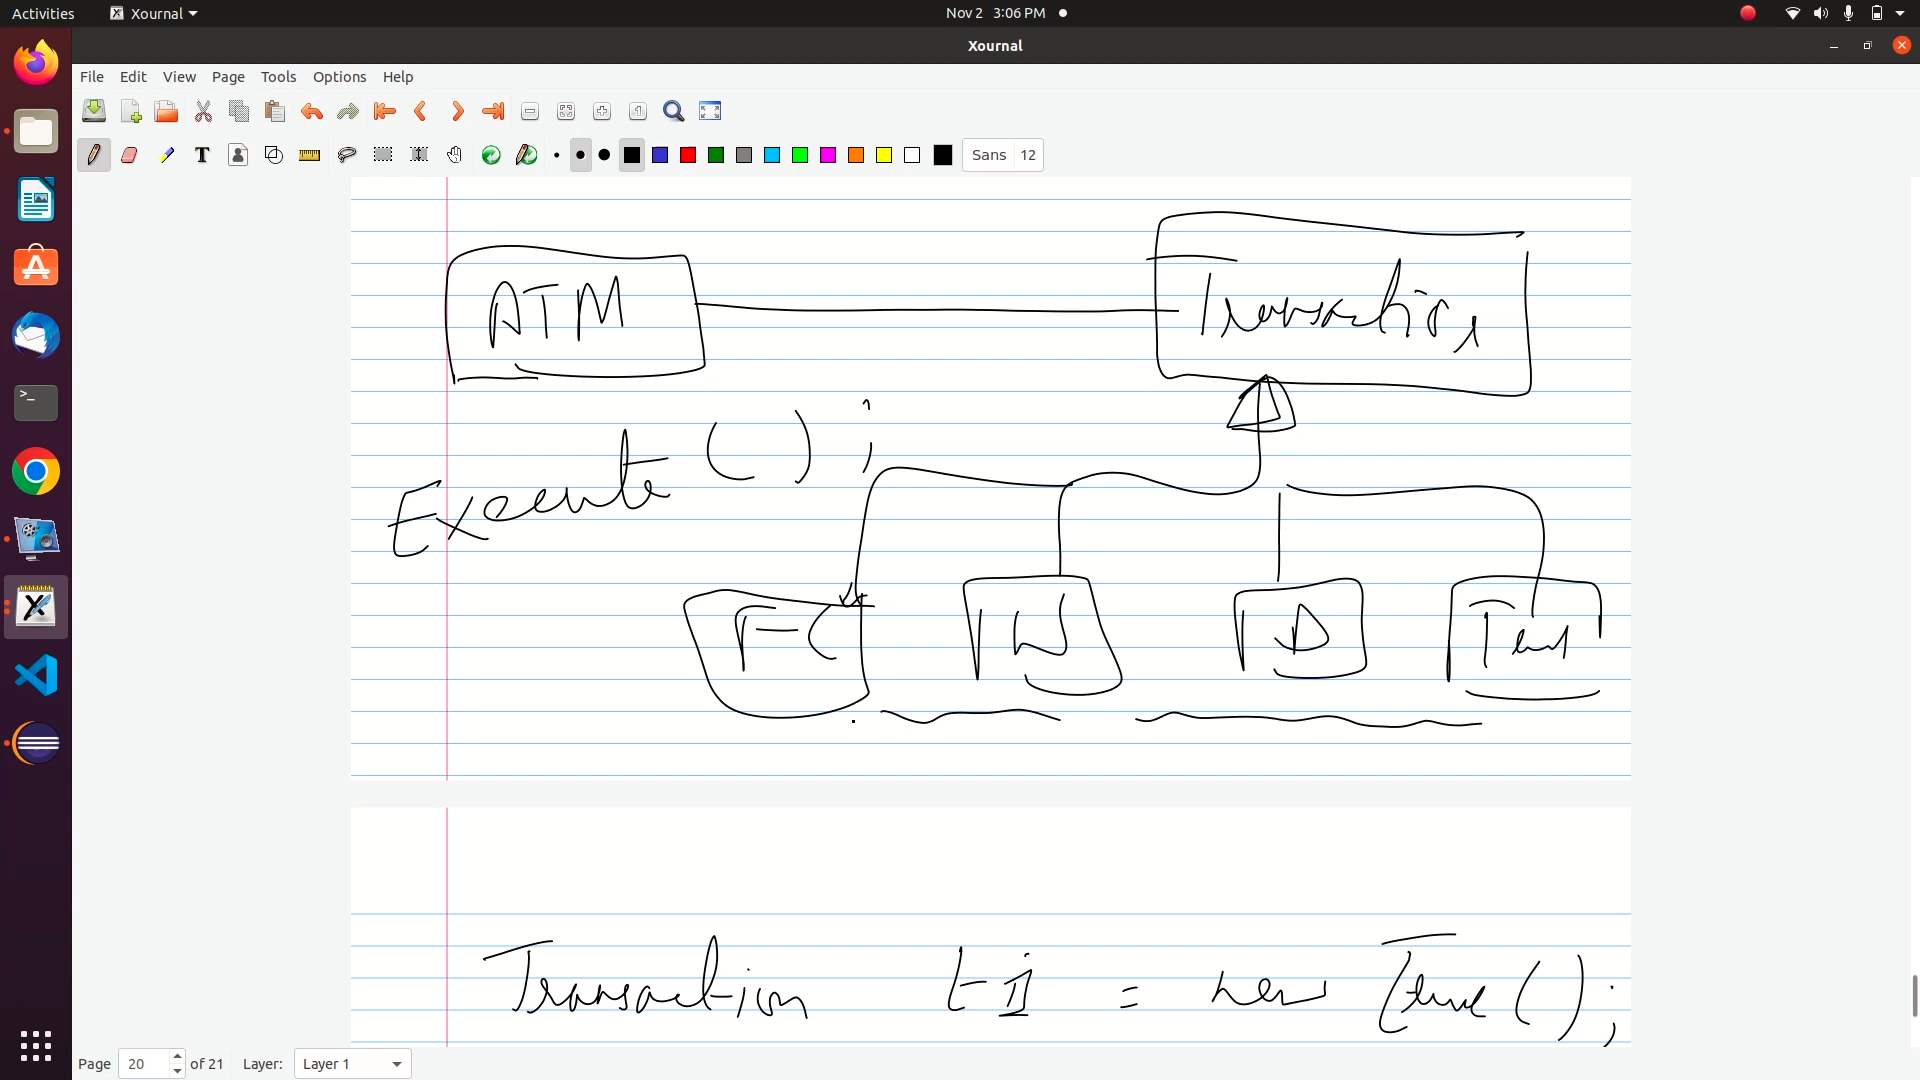 Activities Xournal Nov 2 3:06 PM
Xournal
File Edit View Page Tools Options Help
Sans 12
ATM Transaction
Execute ( ) ;
FC W D
Transaction = new ( ) ;
Page 20 of 21 Layer: Layer 1